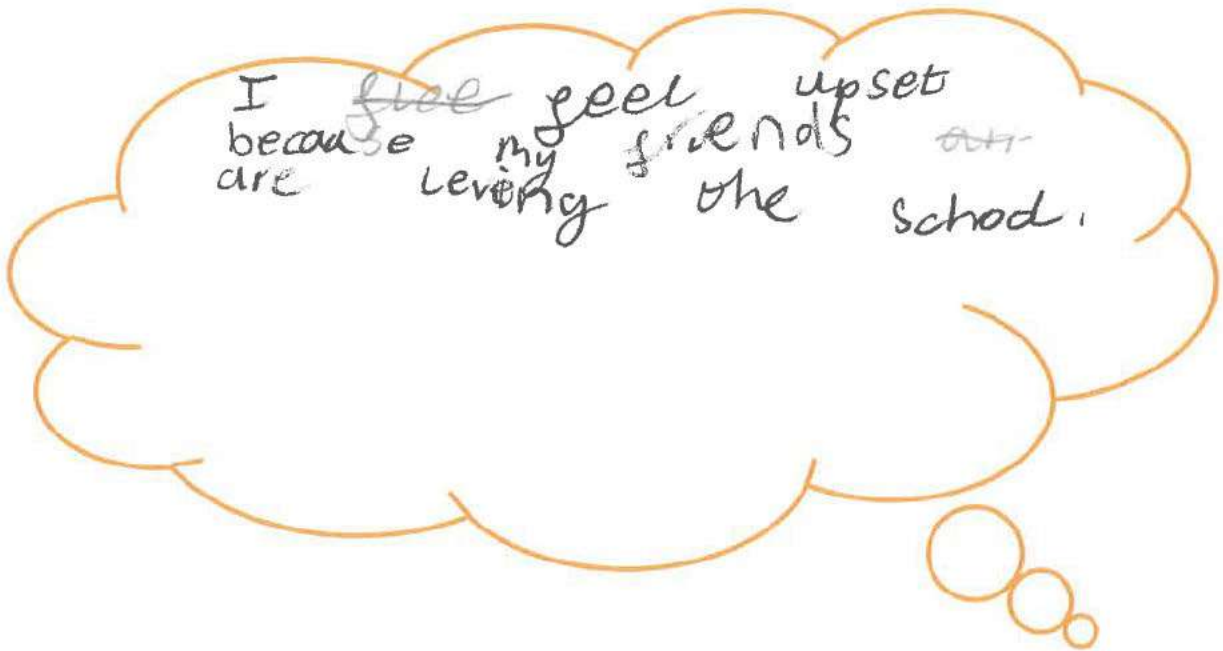 I feel upset
because my friends
are leveing the school.